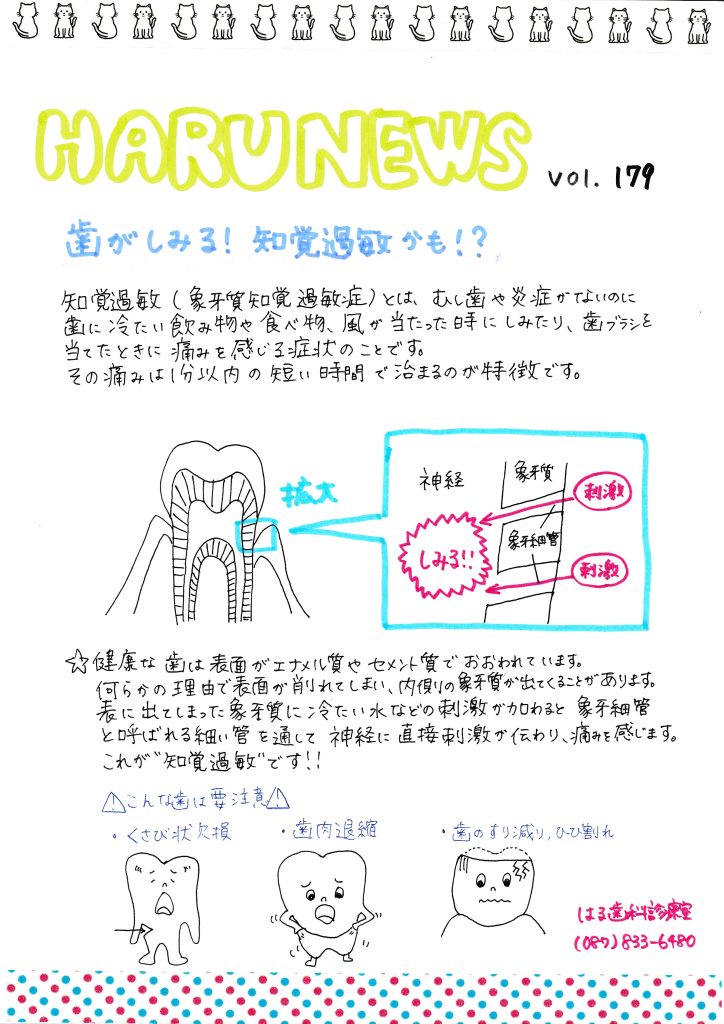 HARU NEWS VOl. 179
歯がしみる! 知覚過敏かも!?
知覚過敏(象牙質知覚過敏症)とは、むし歯や炎症がないのに
歯に冷たい飲み物や食べ物、風が当たった時にしみたり、歯ブラシを
当てたときに痛みを感じる症状のことです。
その痛みは1分以内の短い時間で治まるのが特徴です。
拡大
神経
象牙質
刺激
象牙細管
しみる!!
刺激
☆健康な歯は表面がエナメル質やセメント質でおおわれています。
何らかの理由で表面が削れてしまい、内側の象牙質が出てくることがあります。
表に出てしまった象牙質に冷たい水などの刺激が加わると象牙細管
と呼ばれる細い管を通して神経に直接刺激が伝わり、痛みを感じます。
これが"知覚過敏"です!!
⚠こんな歯は要注意⚠
・くさび状欠損
・歯肉退縮
・歯のすり減り,ひび割れ
はる歯科診療室
(087)833-6480